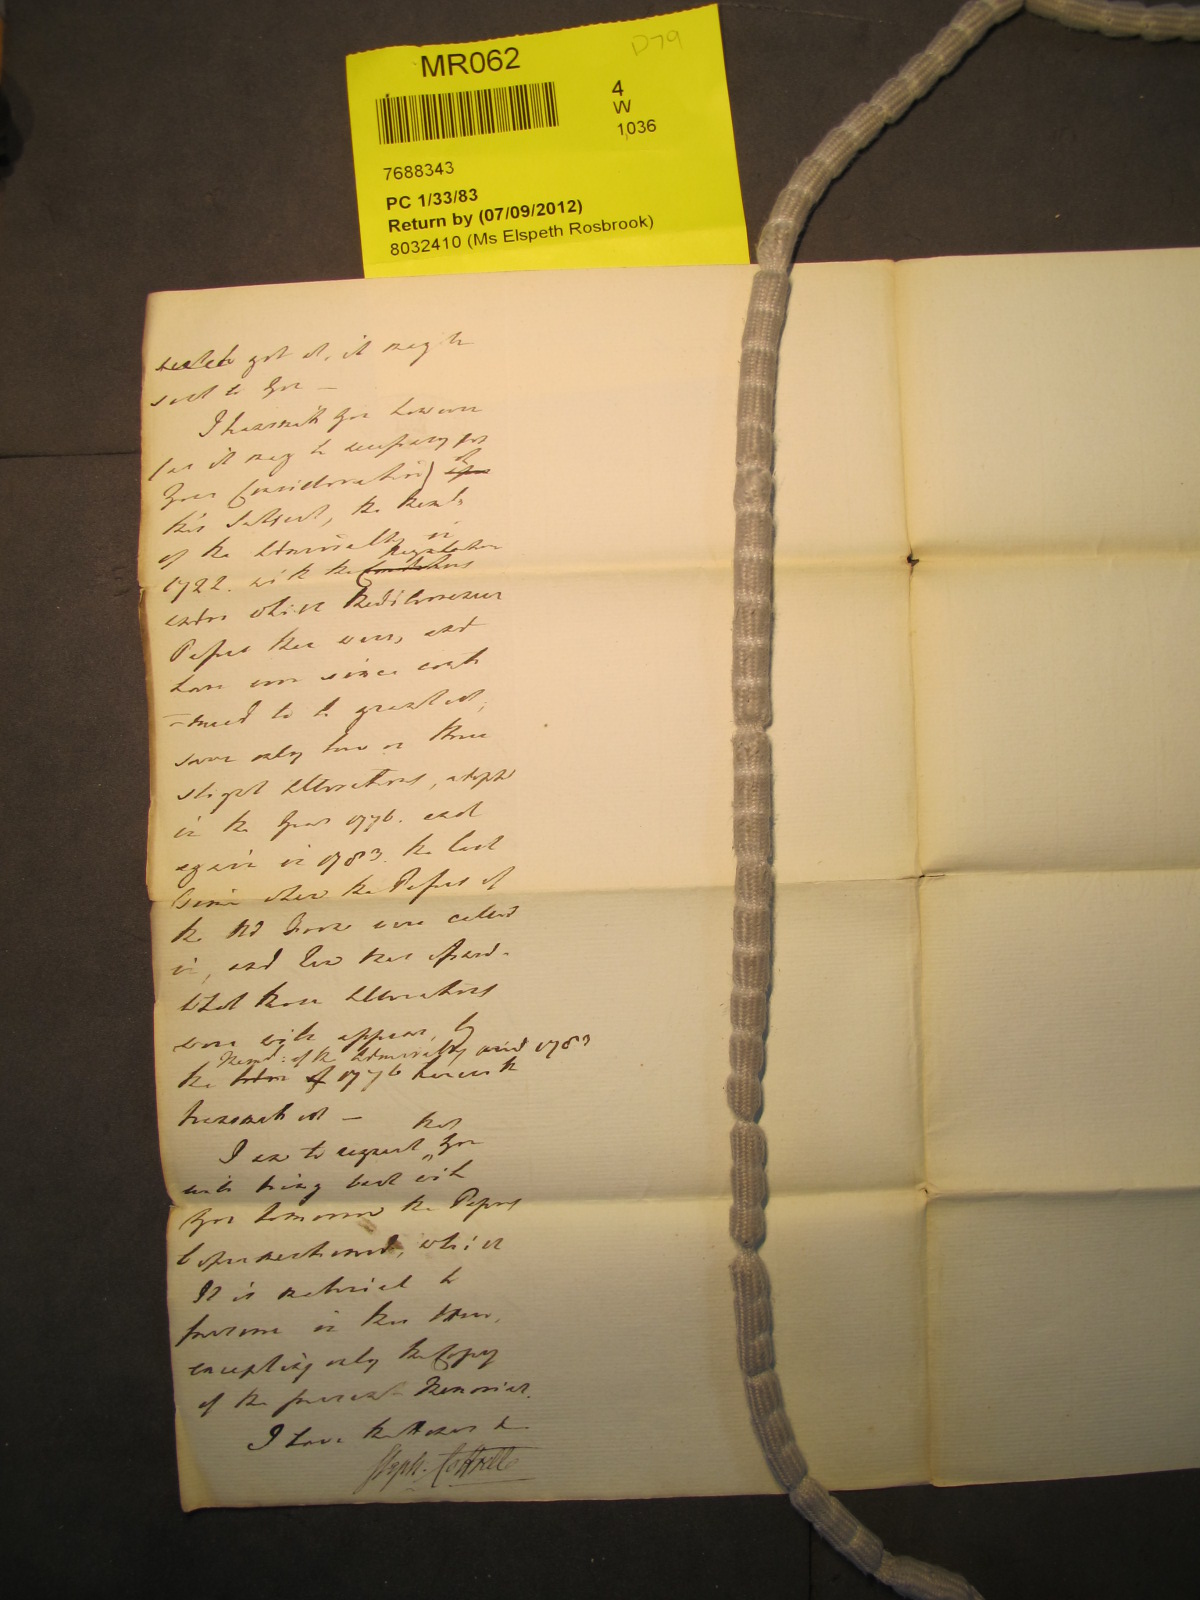 MR062
D79
4
W
1,036
7688343
PC 1/33/83
Return by (07/09/2012)
8032410 (Ms Elspeth Rosbrook)
got it, it may be
sent to You —
I transmit You however
(as it may be necessary for
Your Consideration) on
this Subject, the Meml:
of the Admiralty in
Regulations
1722. with the
under which Mediterranean
Passes then were, and
have ever since conti
-nued to be granted,
save only two or three
slight Alterations, adopted
in the Year 1776. and
again in 1783. the last
time when the Passes of
the Old Form were called
in, and New ones issued.
What those Alterations
were will appear, by
Meml: of the Admiralty and 1783
the Order of 1776 herewith
transmitted —
that
I am to request You
will bring back with
You tomorrow the Papers
beforementioned, which
It is material to
preserve in this Office,
excepting only the Copy
of the present Memorial.
I have the Honor &c
Steph. Cottrell